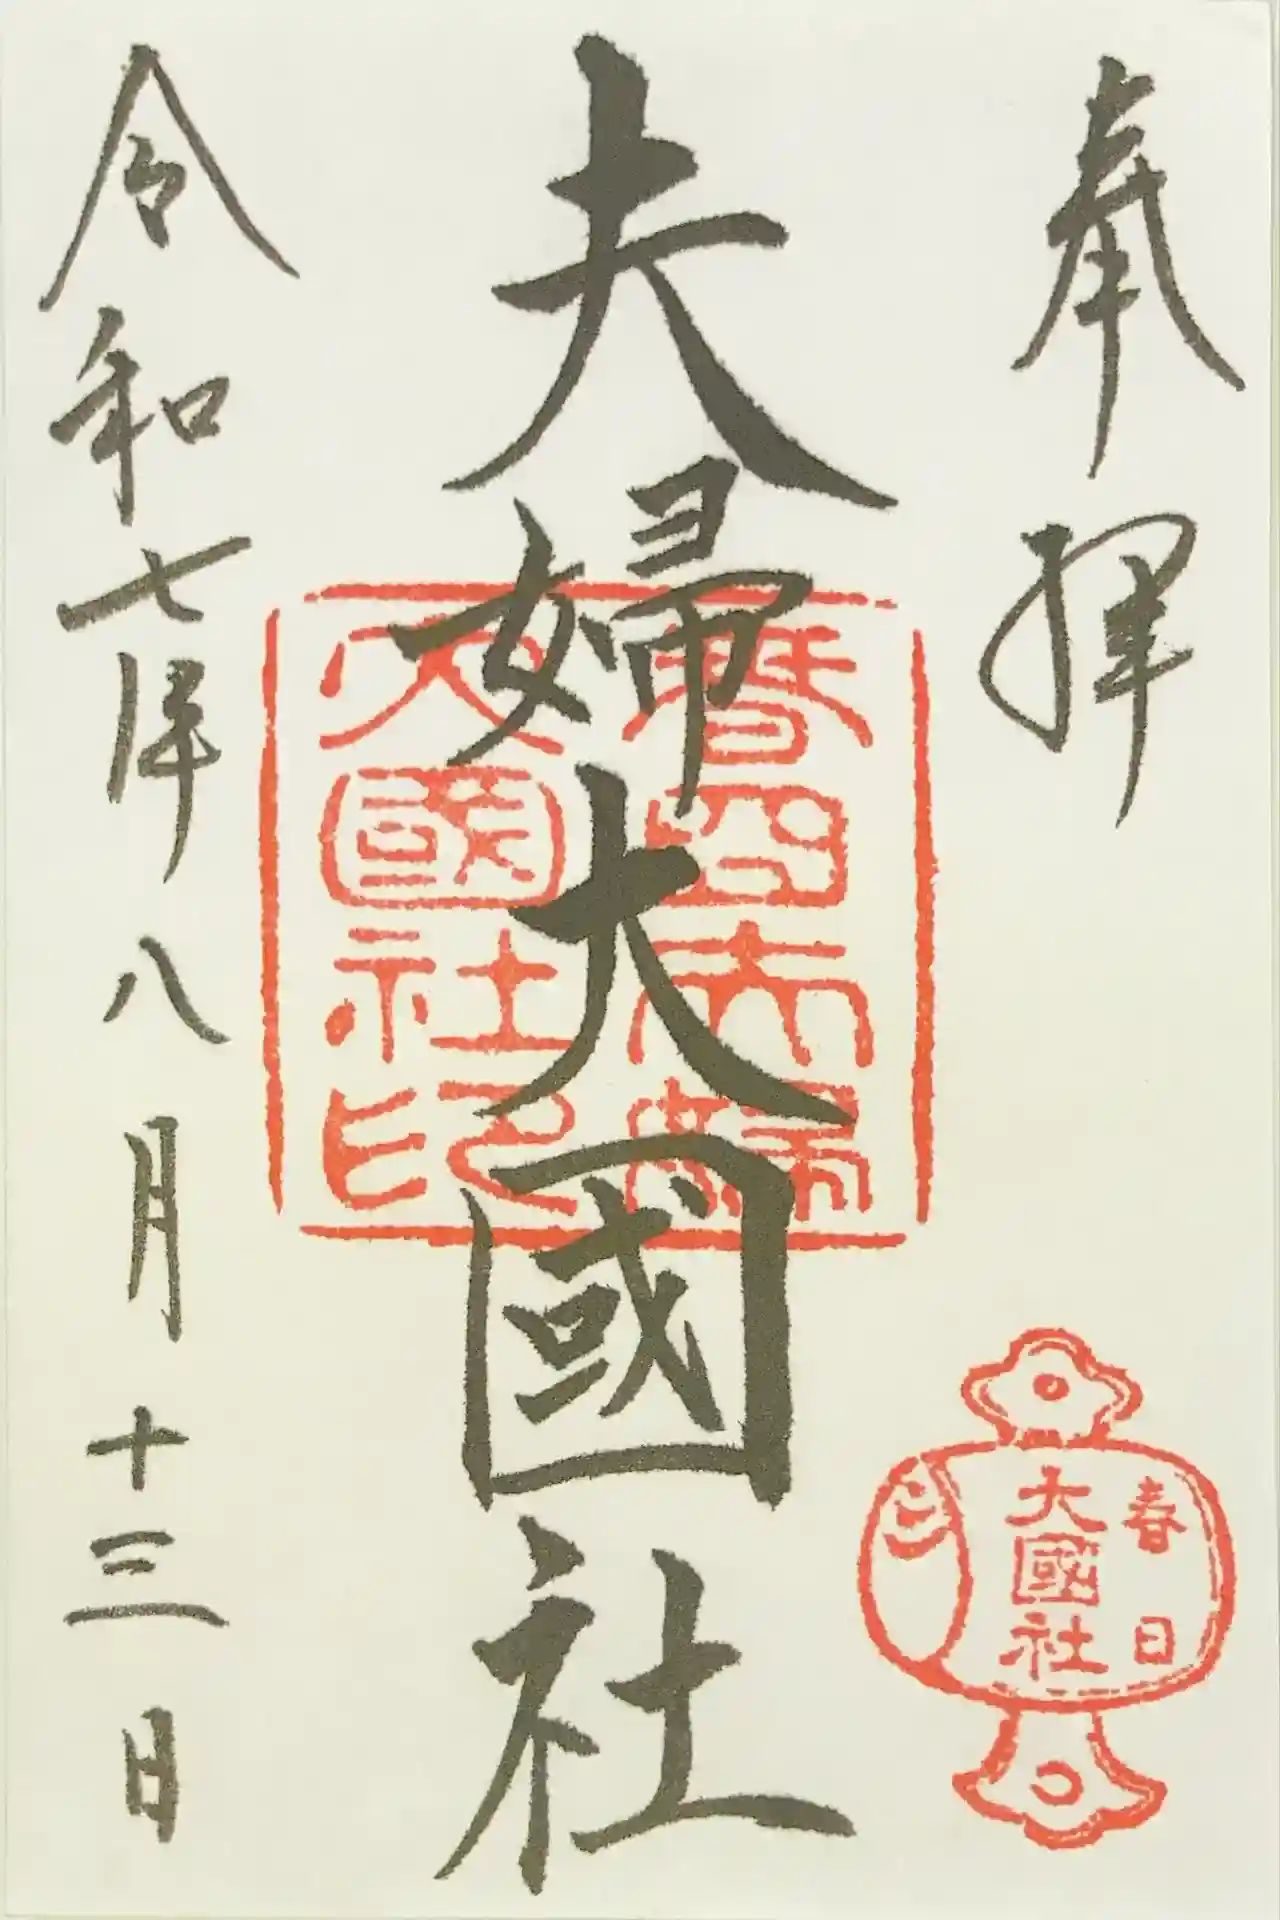 奉拝
夫婦大國社
令和七年八月十三日
春日夫婦
大國社印
春日
大國社